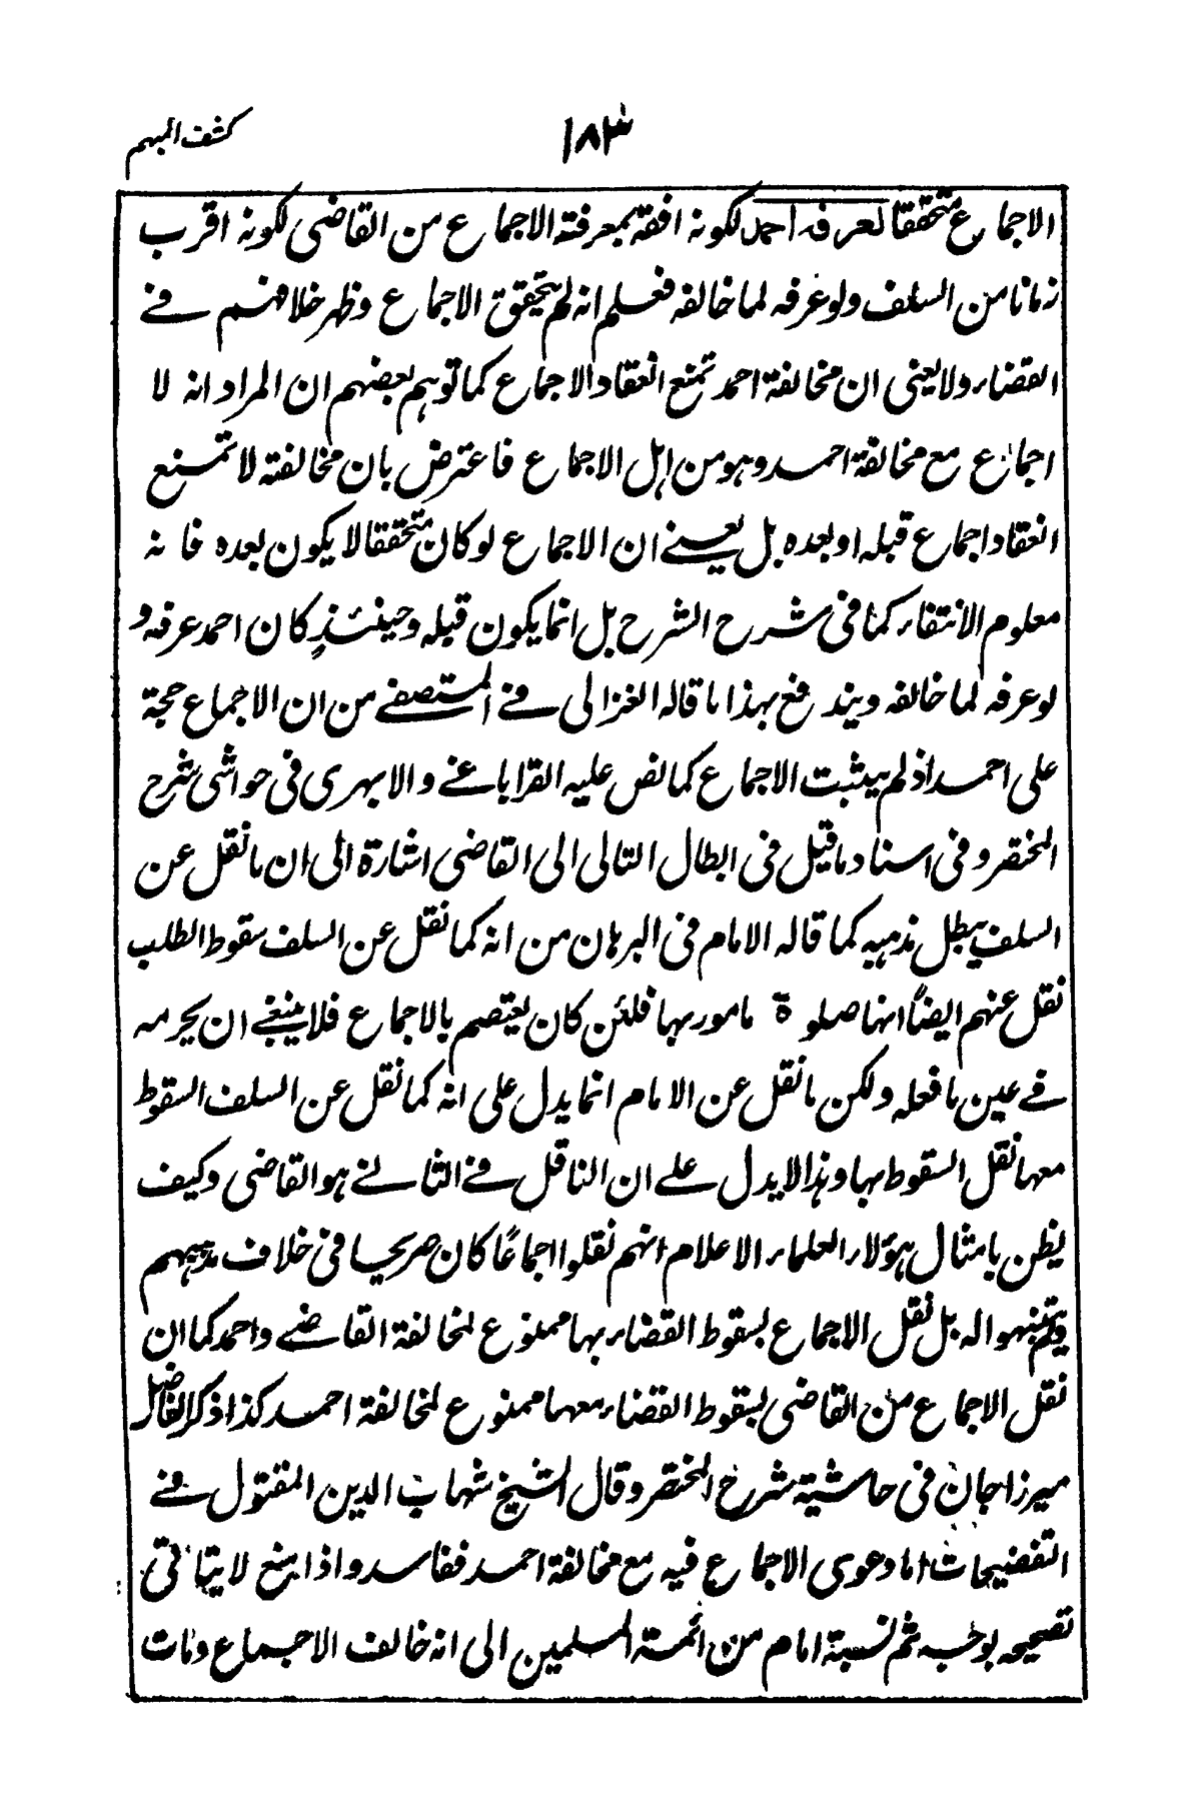 كشف المبهم
١٨٣
الاجماع متحققا لعرفه احمد لكونه افقه بمعرفة الاجماع من القاضى لكونه اقرب
زمانا من السلف ولو عرفه لما خالفه فعلم انه لم يتحقق الاجماع وظهر خلافهم فے
القضاء ولا يعنى ان مخالفة احمد تمنع انعقاد الاجماع كما توهم بعضهم ان المراد انه لا
اجماع مع مخالفة احمد وهو من اهل الاجماع فاعترض بان مخالفته لا تمنع
انعقاد اجماع قبله او بعده بل يعنے ان الاجماع لو كان متحققا لا يكون بعده فانه
معلوم الانتفاء كما فى شرح الشرح بل انما يكون قبله وحينئذٍ كان احمد عرفه و
لو عرفه لما خالفه ويندفع بهذا ما قاله الغزالى فے المستصفے من ان الاجماع حجة
على احمد اذ لم يثبت الاجماع كما نص عليه القراباغے والابهرى فى حواشى شرح
المختصر وفى اسناد ما قيل فى ابطال التالى الى القاضى اشارة الى ان ما نقل عن
السلف يبطل مذهبه كما قاله الامام فى البرهان من انه كما نقل عن السلف سقوط الطلب
نقل عنهم ايضاً انها صلوة مامور بها فلئن كان يعتصم بالاجماع فلا ينبغے ان يحرمه
فے عين ما فعله ولكن ما نقل عن الامام انما يدل على انه كما نقل عن السلف السقوط
معها نقل السقوط بها وهذا لا يدل علے ان الناقل فے الثانے هو القاضى وكيف
يظن بامثال هؤلاء العلماء الاعلام انهم نقلوا اجماعًا كان صريحا فى خلاف مذهبهم
ولم يتنبهوا له بل نقل الاجماع بسقوط القضاء بها ممنوع لمخالفة القاضے واحمد كما ان
نقل الاجماع من القاضى بسقوط القضاء معها ممنوع لمخالفة احمد كذا ذكر الفاضل
ميرزا جان فى حاشية شرح المختصر وقال الشيخ شهاب الدين المقتول فے
التنقيحات اما دعوى الاجماع فيه مع مخالفة احمد ففاسد واذا منع لا يتاتى
تصحيحه بوجه ثم نسبة امام من ائمة المسلمين الى انه خالف الاجماع ومات